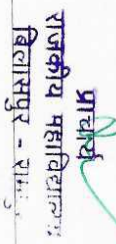 प्राचार्य
राजकीय महाविद्यालय
बिलासपुर -